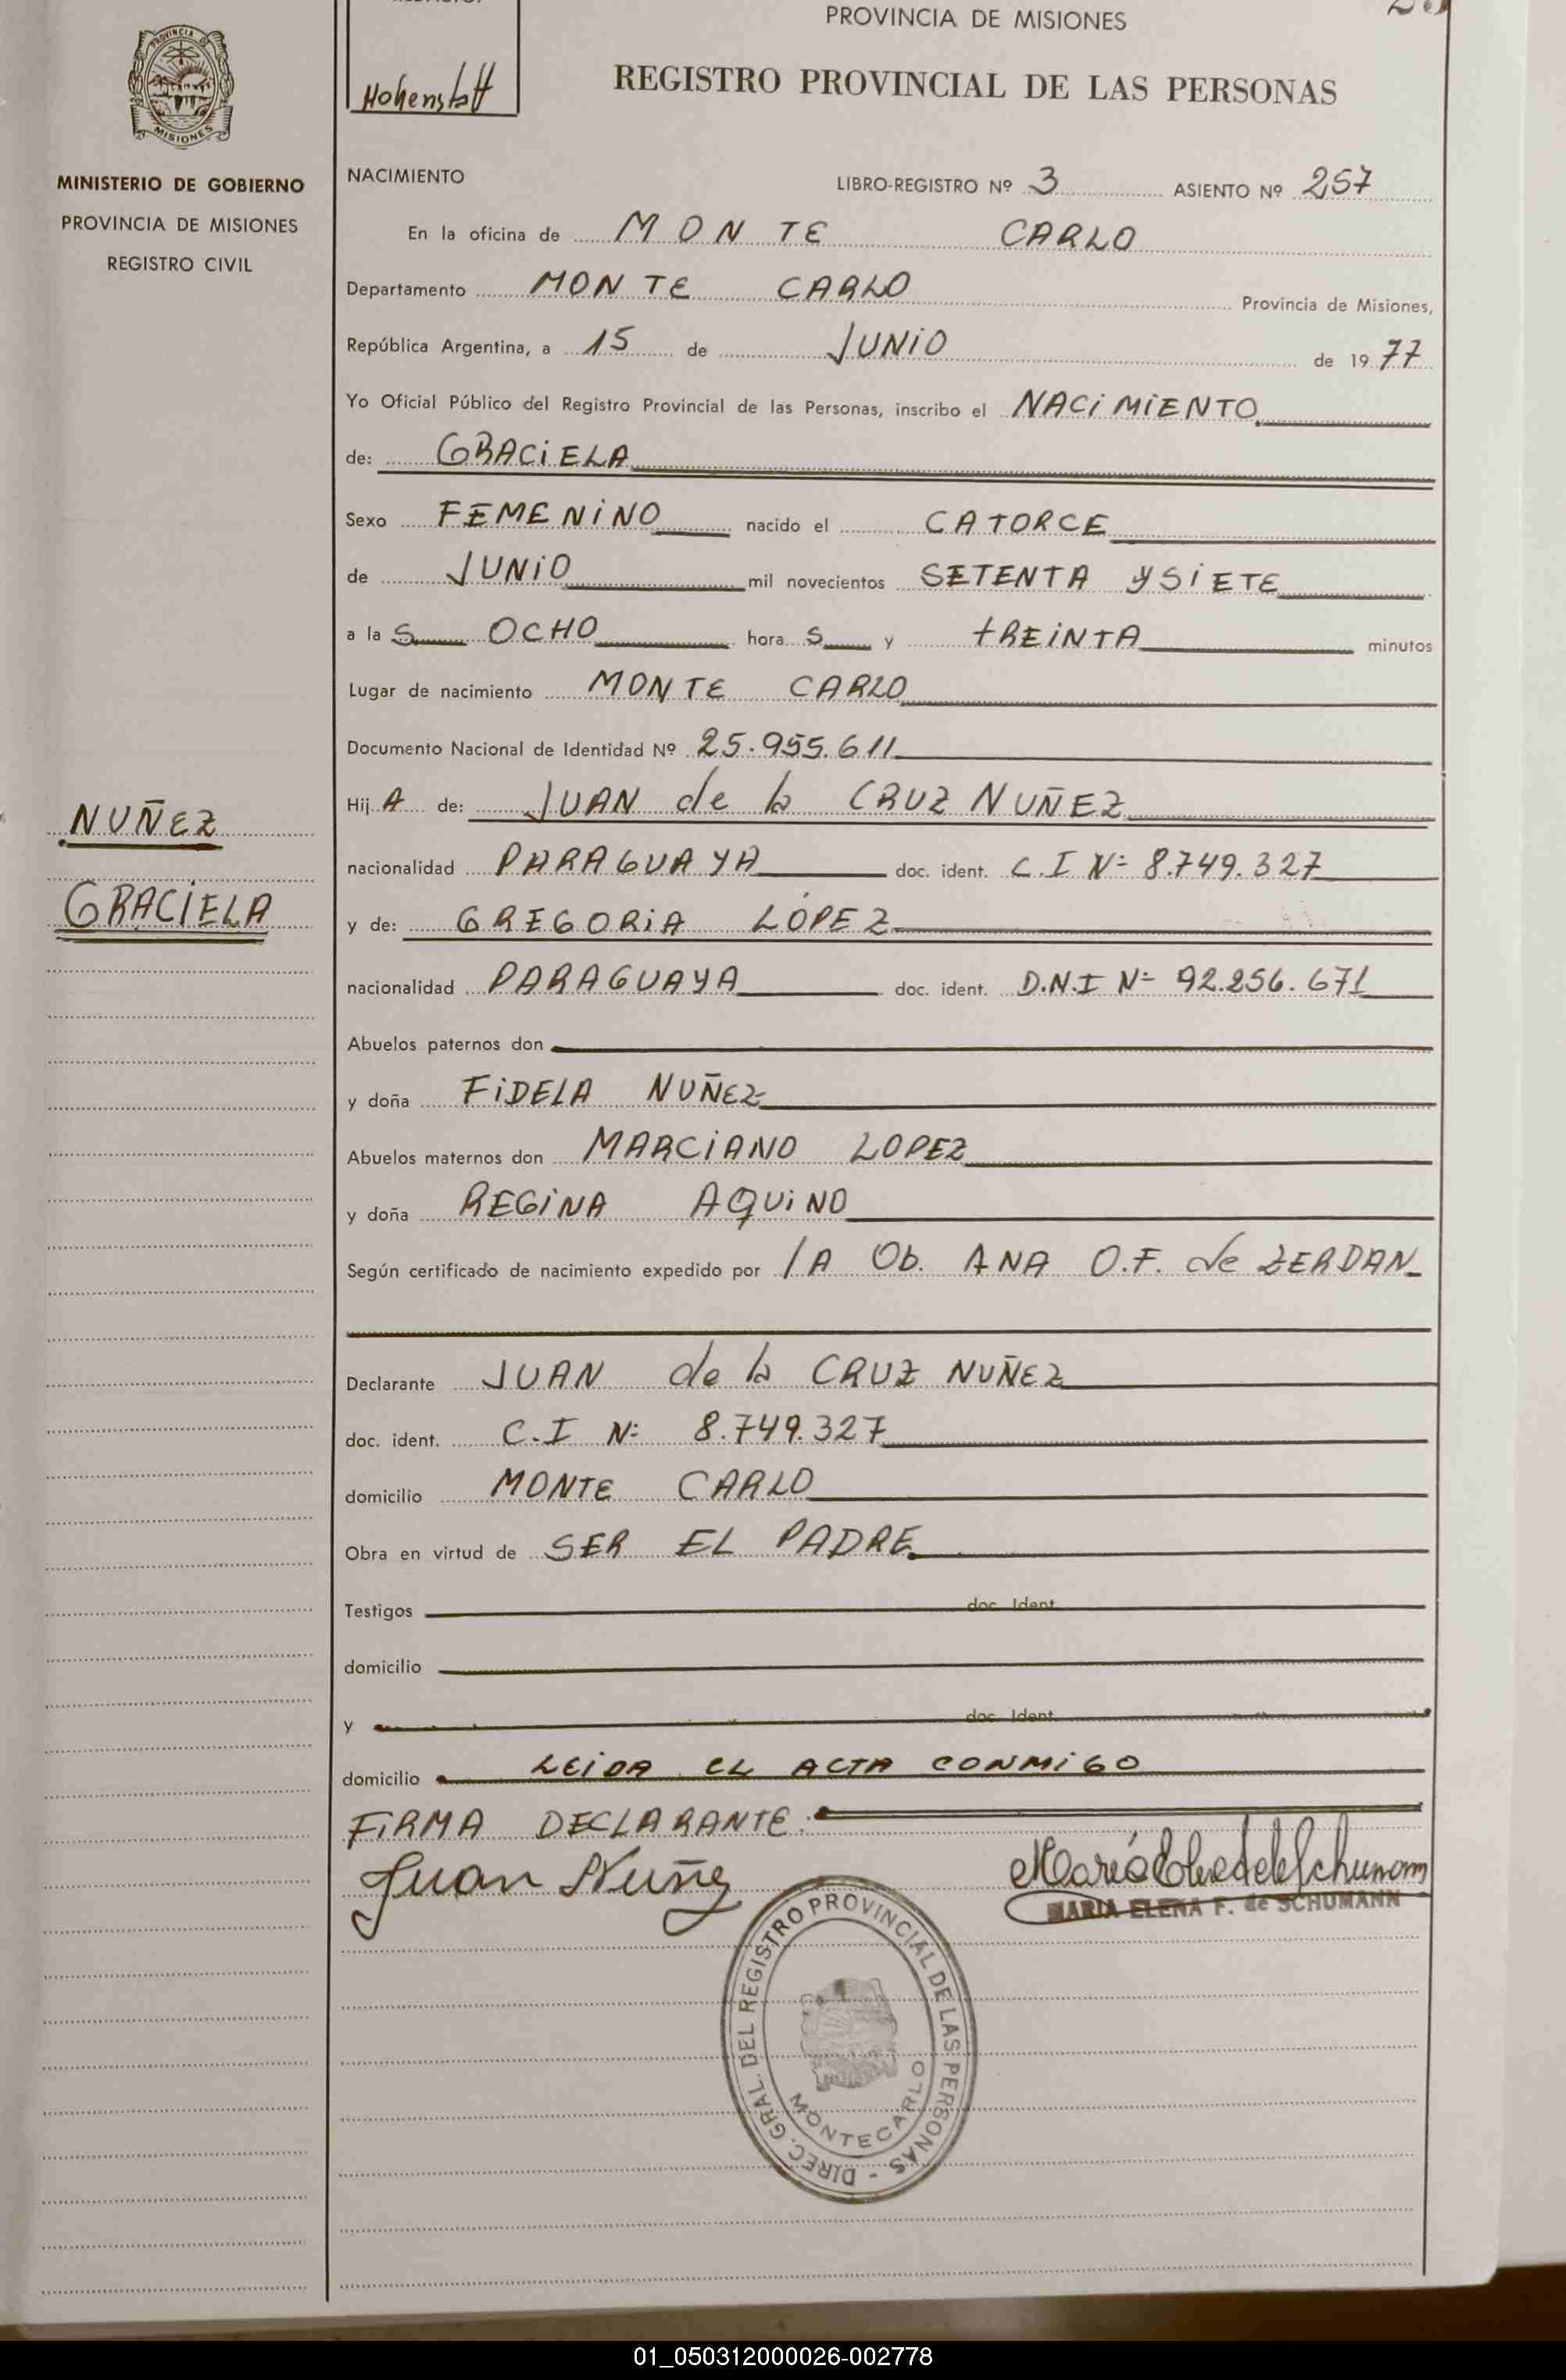 PROVINCIA DE MISIONES
REGISTRO PROVINCIAL DE LAS PERSONAS
Hohenstatt
PROVINCIA DE
MISIONES
MINISTERIO DE GOBIERNO
PROVINCIA DE MISIONES
REGISTRO CIVIL
NUÑEZ
GRACIELA
NACIMIENTO LIBRO-REGISTRO Nº 3 ASIENTO Nº 257
En la oficina de MONTE CARLO
Departamento MONTE CARLO Provincia de Misiones,
República Argentina, a 15 de JUNIO de 19 77
Yo Oficial Público del Registro Provincial de las Personas, inscribo el NACIMIENTO
de: GRACIELA
Sexo FEMENINO nacido el CATORCE
de JUNIO mil novecientos SETENTA Y SIETE
a la S OCHO hora S y tREINTA minutos
Lugar de nacimiento MONTE CARLO
Documento Nacional de Identidad Nº 25.955.611
Hij A de: JUAN de la CRUZ NUÑEZ
nacionalidad PARAGUAYA doc. ident. C.I Nº 8.749.327
y de: GREGORIA LÓPEZ
nacionalidad PARAGUAYA doc. ident. D.N.I Nº 92.256.671
Abuelos paternos don
y doña FIDELA NUÑEZ
Abuelos maternos don MARCIANO LOPEZ
y doña REGINA AQUINO
Según certificado de nacimiento expedido por lA Ob. ANA O.F. de ZERDAN
Declarante JUAN de la CRUZ NUÑEZ
doc. ident. C.I Nº 8.749.327
domicilio MONTE CARLO
Obra en virtud de SER EL PADRE
Testigos doc. Ident.
domicilio
y doc. Ident.
domicilio LEIDA EL ACTA CONMIGO
FIRMA DECLARANTE:
Juan Nuñez
MARIA ELENA F. de SCHUMANN
DIREC. GRAL. DEL REGISTRO PROVINCIAL DE LAS PERSONAS -
MONTECARLO
01_050312000026-002778